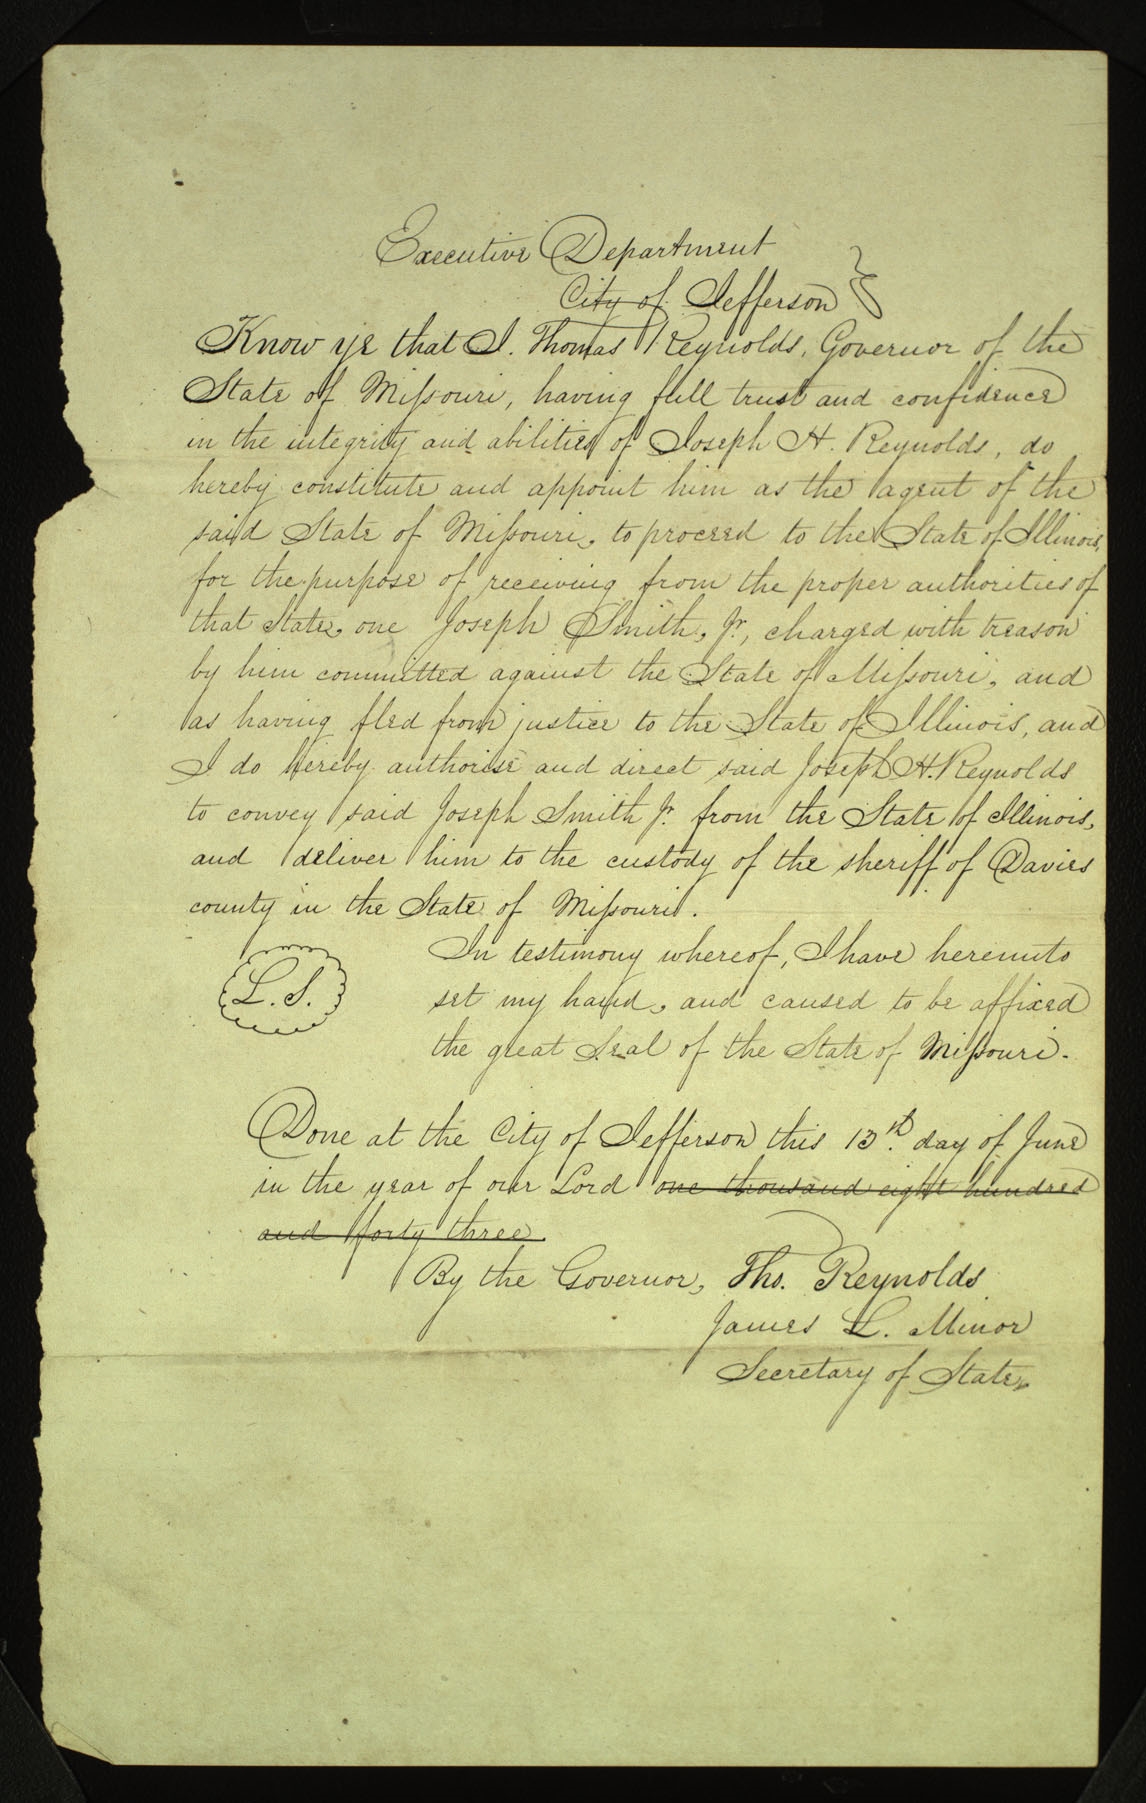 Executive Department
City of Jefferson }
Know ye that I. Thomas Reynolds, Governor of the
State of Missouri, having full trust and confidence
in the integrity and abilities of Joseph H. Reynolds, do
hereby constitute and appoint him as the agent of the
said State of Missouri, to proceed to the State of Illinois,
for the purpose of receiving from the proper authorities of
that State, one Joseph Smith, Jr., charged with treason
by him committed against the State of Missouri, and
as having fled from justice to the State of Illinois, and
I do hereby authorise and direct said Joseph H. Reynolds
to convey said Joseph Smith Jr. from the State of Illinois,
and deliver him to the custody of the sheriff of Davies
county in the State of Missouri.
In testimony whereof, I have hereunto
L. S.
set my hand, and caused to be affixed
the great Seal of the State of Missouri.
Done at the City of Jefferson this 13th. day of June
in the year of our Lord one thousand eight hundred
and forty three.
By the Governor, Tho. Reynolds
James L. Minor
Secretary of State,